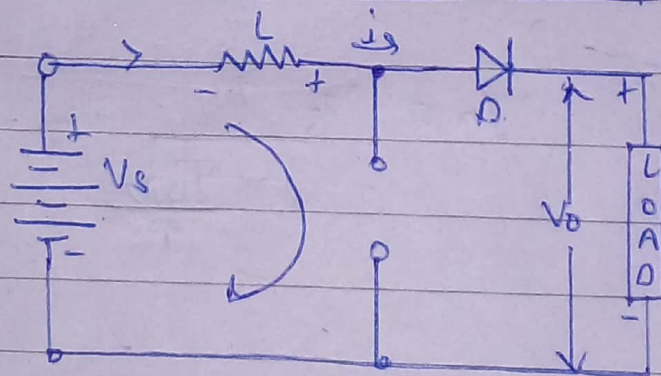 L
i
- +
D
+
+
Vs
-
Vo
LOAD
-